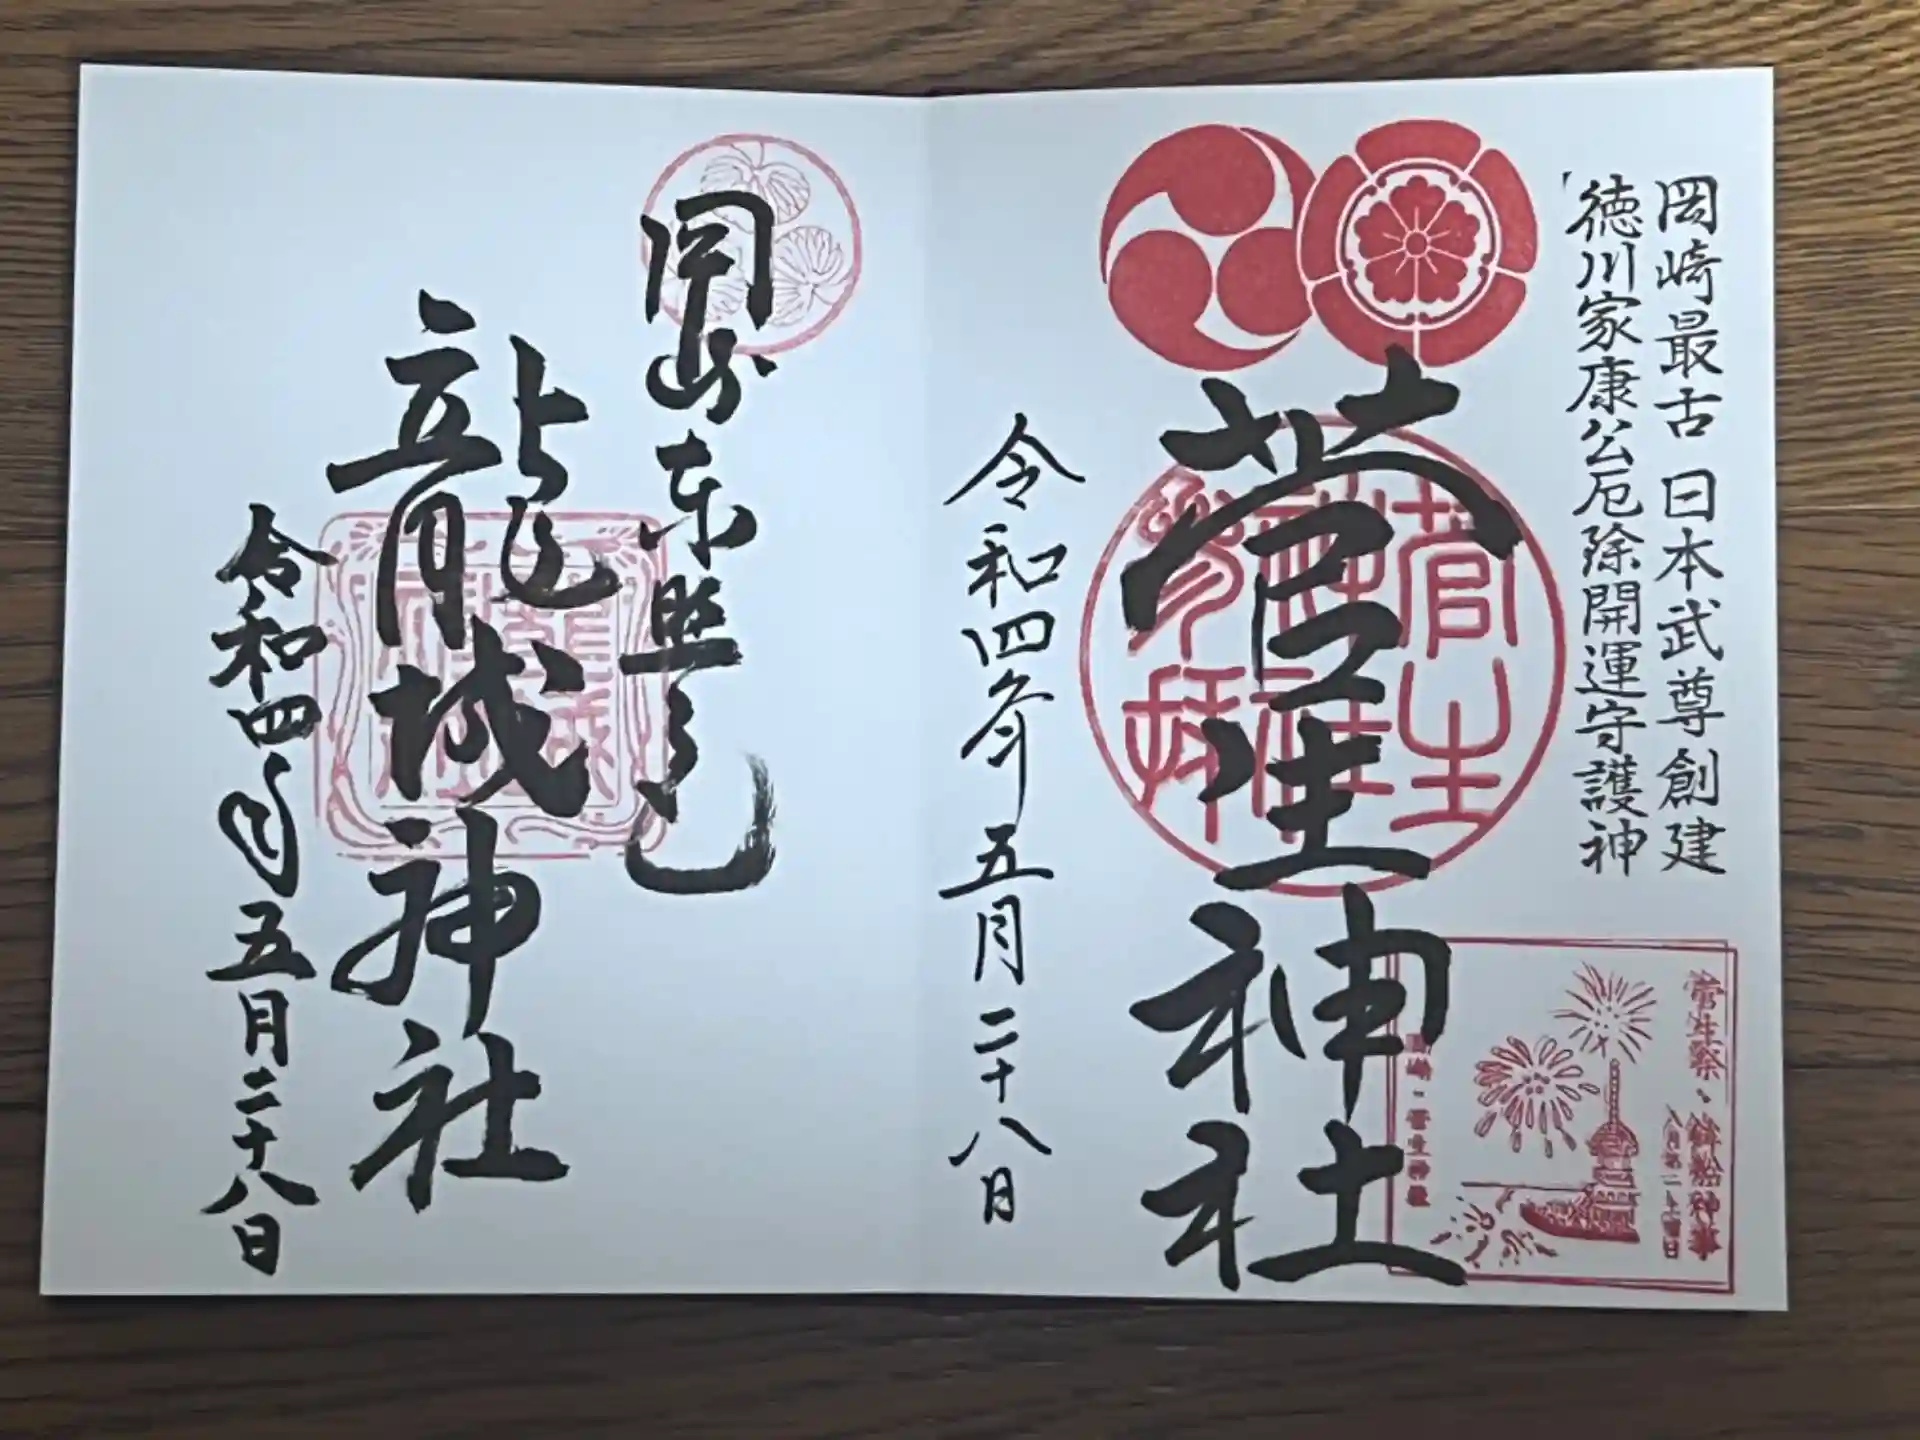 岡崎最古 日本武尊創建
徳川家康公厄除開運守護神
菅生神社
菅生
神社
参拝
菅生祭・鉾船神事
八月第二土曜日
岡崎・菅生神社
令和四年五月二十八日
岡崎東照宮
龍城神社
令和四年五月二十八日